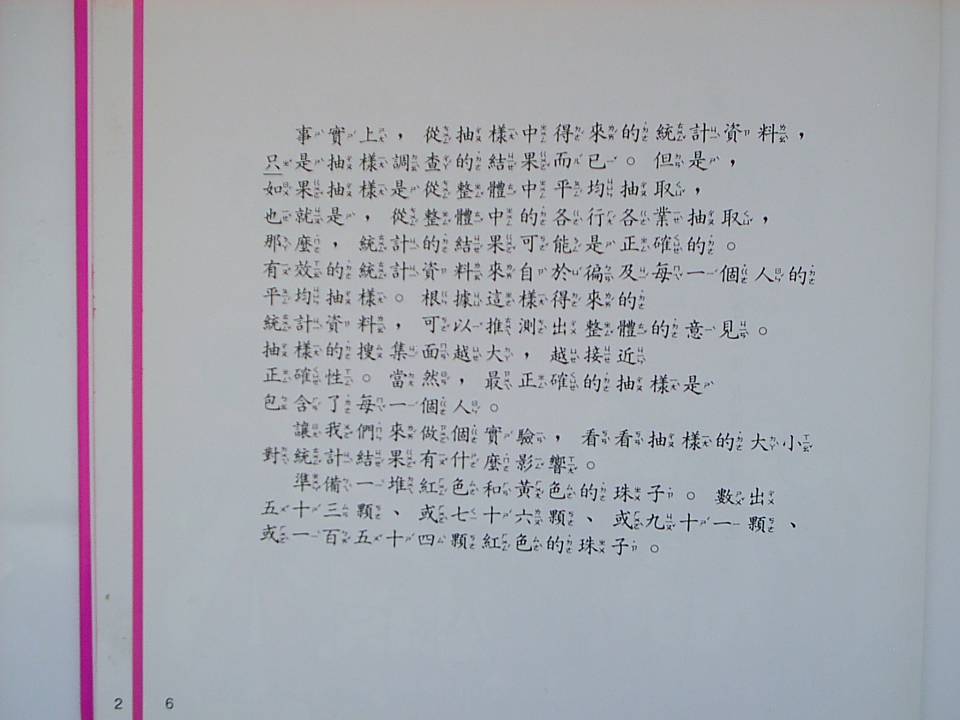 事實上，從抽樣中得來的統計資料，
只是抽樣調查的結果而已。但是，
如果抽樣是從整體中平均抽取，
也就是，從整體中的各行各業抽取，
那麼，統計的結果可能是正確的。
有效的統計資料來自於徧及每一個人的
平均抽樣。根據這樣得來的
統計資料，可以推測出整體的意見。
抽樣的搜集面越大，越接近
正確性。當然，最正確的抽樣是
包含了每一個人。
讓我們來做個實驗，看看抽樣的大小
對統計結果有什麼影響。
準備一堆紅色和黃色的珠子。數出
五十三顆、或七十六顆、或九十一顆、
或一百五十四顆紅色的珠子。
2 6